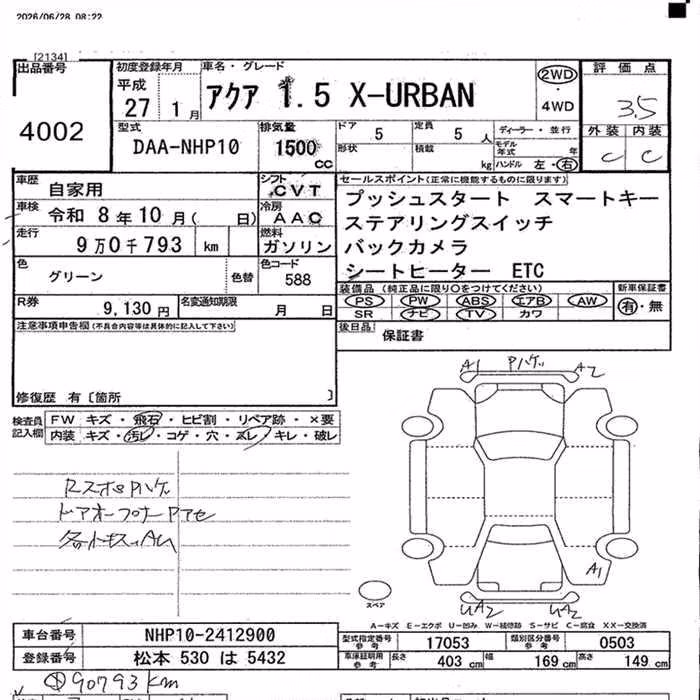 2026/06/28 08:22
[2134]
出品番号
4002
初度登録年月
平成
27 1月
車名・グレード
アクア 1.5 X-URBAN
2WD
・
4WD
評価点
3.5
外装 内装
C C
型式
DAA-NHP10
排気量
1500 cc
ドア 5
定員 5 人
形状
積載 kg
ディーラー・並行
モデル年式 年
ハンドル 左・右
車歴
自家用
シフト
CVT
車検
令和 8年10月( 日)
冷房
AAC
走行
9万0千793 km
燃料
ガソリン
色
グリーン
色替
色コード
588
セールスポイント(正常に機能するものに限ります)
プッシュスタート スマートキー
ステアリングスイッチ
バックカメラ
シートヒーター ETC
装備品(純正品に限り〇をつけてください)
PS PW ABS エアB AW
SR ナビ TV カワ
新車保証書
有・無
R券
9,130円
名変通知期限
月 日
後日品
保証書
注意事項申告欄(不具合内容等は具体的に記入して下さい)
修復歴 有〔箇所 〕
検査員記入欄
FW キズ・飛石・ヒビ割・リペア跡・×要
内装 キズ・汚レ・コゲ・穴・スレ・キレ・破レ
A1 Pハゲ A2
RスポもPハゲ
ドアオープナーPアセ
A1
スペア
UA2 UA2
A−キズ E−エクボ U−凹み W−補修跡 S−サビ C−腐食 XX−交換済
車台番号
NHP10-2412900
登録番号
松本 530 は 5432
型式指定番号 参考
17053
類別区分番号 参考
0503
車庫証明用 参考
長さ 403 cm
幅 169 cm
高さ 149 cm
90793Km